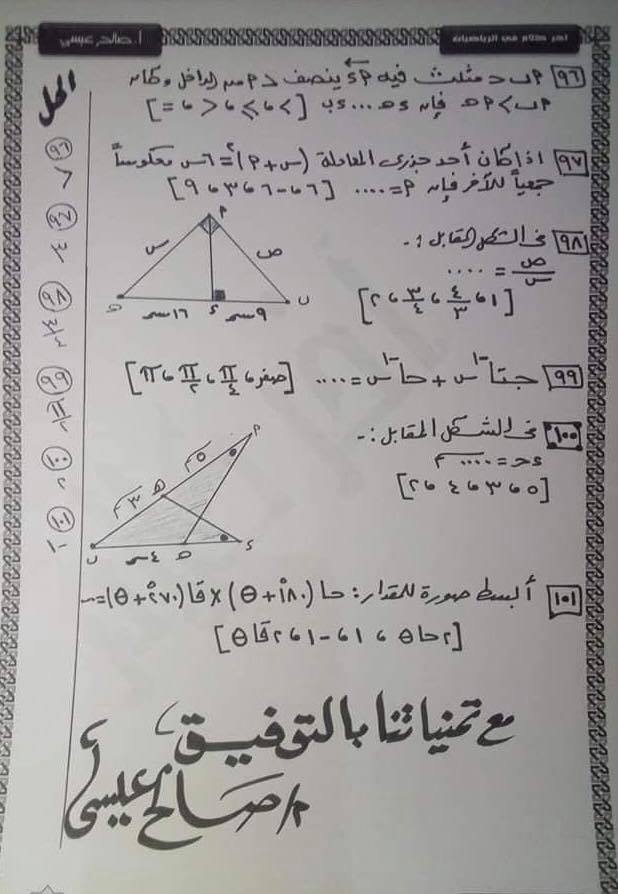 آخر كلام في الرياضيات
أ. صالح عيسى
الحل
٩٦ م ب ح مثلث فيه م ء ينصف > م من الداخل وكان
م ب > م ح فإن ء ح .... ء ب [< ، ≤ ، > ، =]
٩٧ اذا كان أحد جزرى المعادلة (س + م)² = ٦س معكوساً
جمعياً للآخر فإن م = .... [٦ ، -٦ ، ٣ ، ٩]
٩٨ فى الشكل المقابل :-
ص/س = ....
[١ ، ٤/٣ ، ٣/٤ ، ٢]
م
س
ص
ح
ء
ب
١٦ سم
٩ سم
٩٩ جتا⁻¹ س + حا⁻¹ س = .... [صفر ، π/٤ ، π/٢ ، π]
١٠٠ فى الشكل المقابل :-
ء ح = .... سم
[٥ ، ٣ ، ٤ ، ٢]
م
٥ سم
ه
٣ سم
ب
ح
ء
٤ سم
١٠١ أبسط صورة للمقدار : حا (١٨٠° + θ) × قا (٢٧٠° + θ) = ...
[٢حا θ ، ١ ، -١ ، ٢قا θ]
٩٦
<
٩٧
٣
٩٨
٣/٤
٩٩
π/٢
١٠٠
٢
١٠١
-١
مع تمنياتنا بالتوفيق
أ/ صالح عيسى